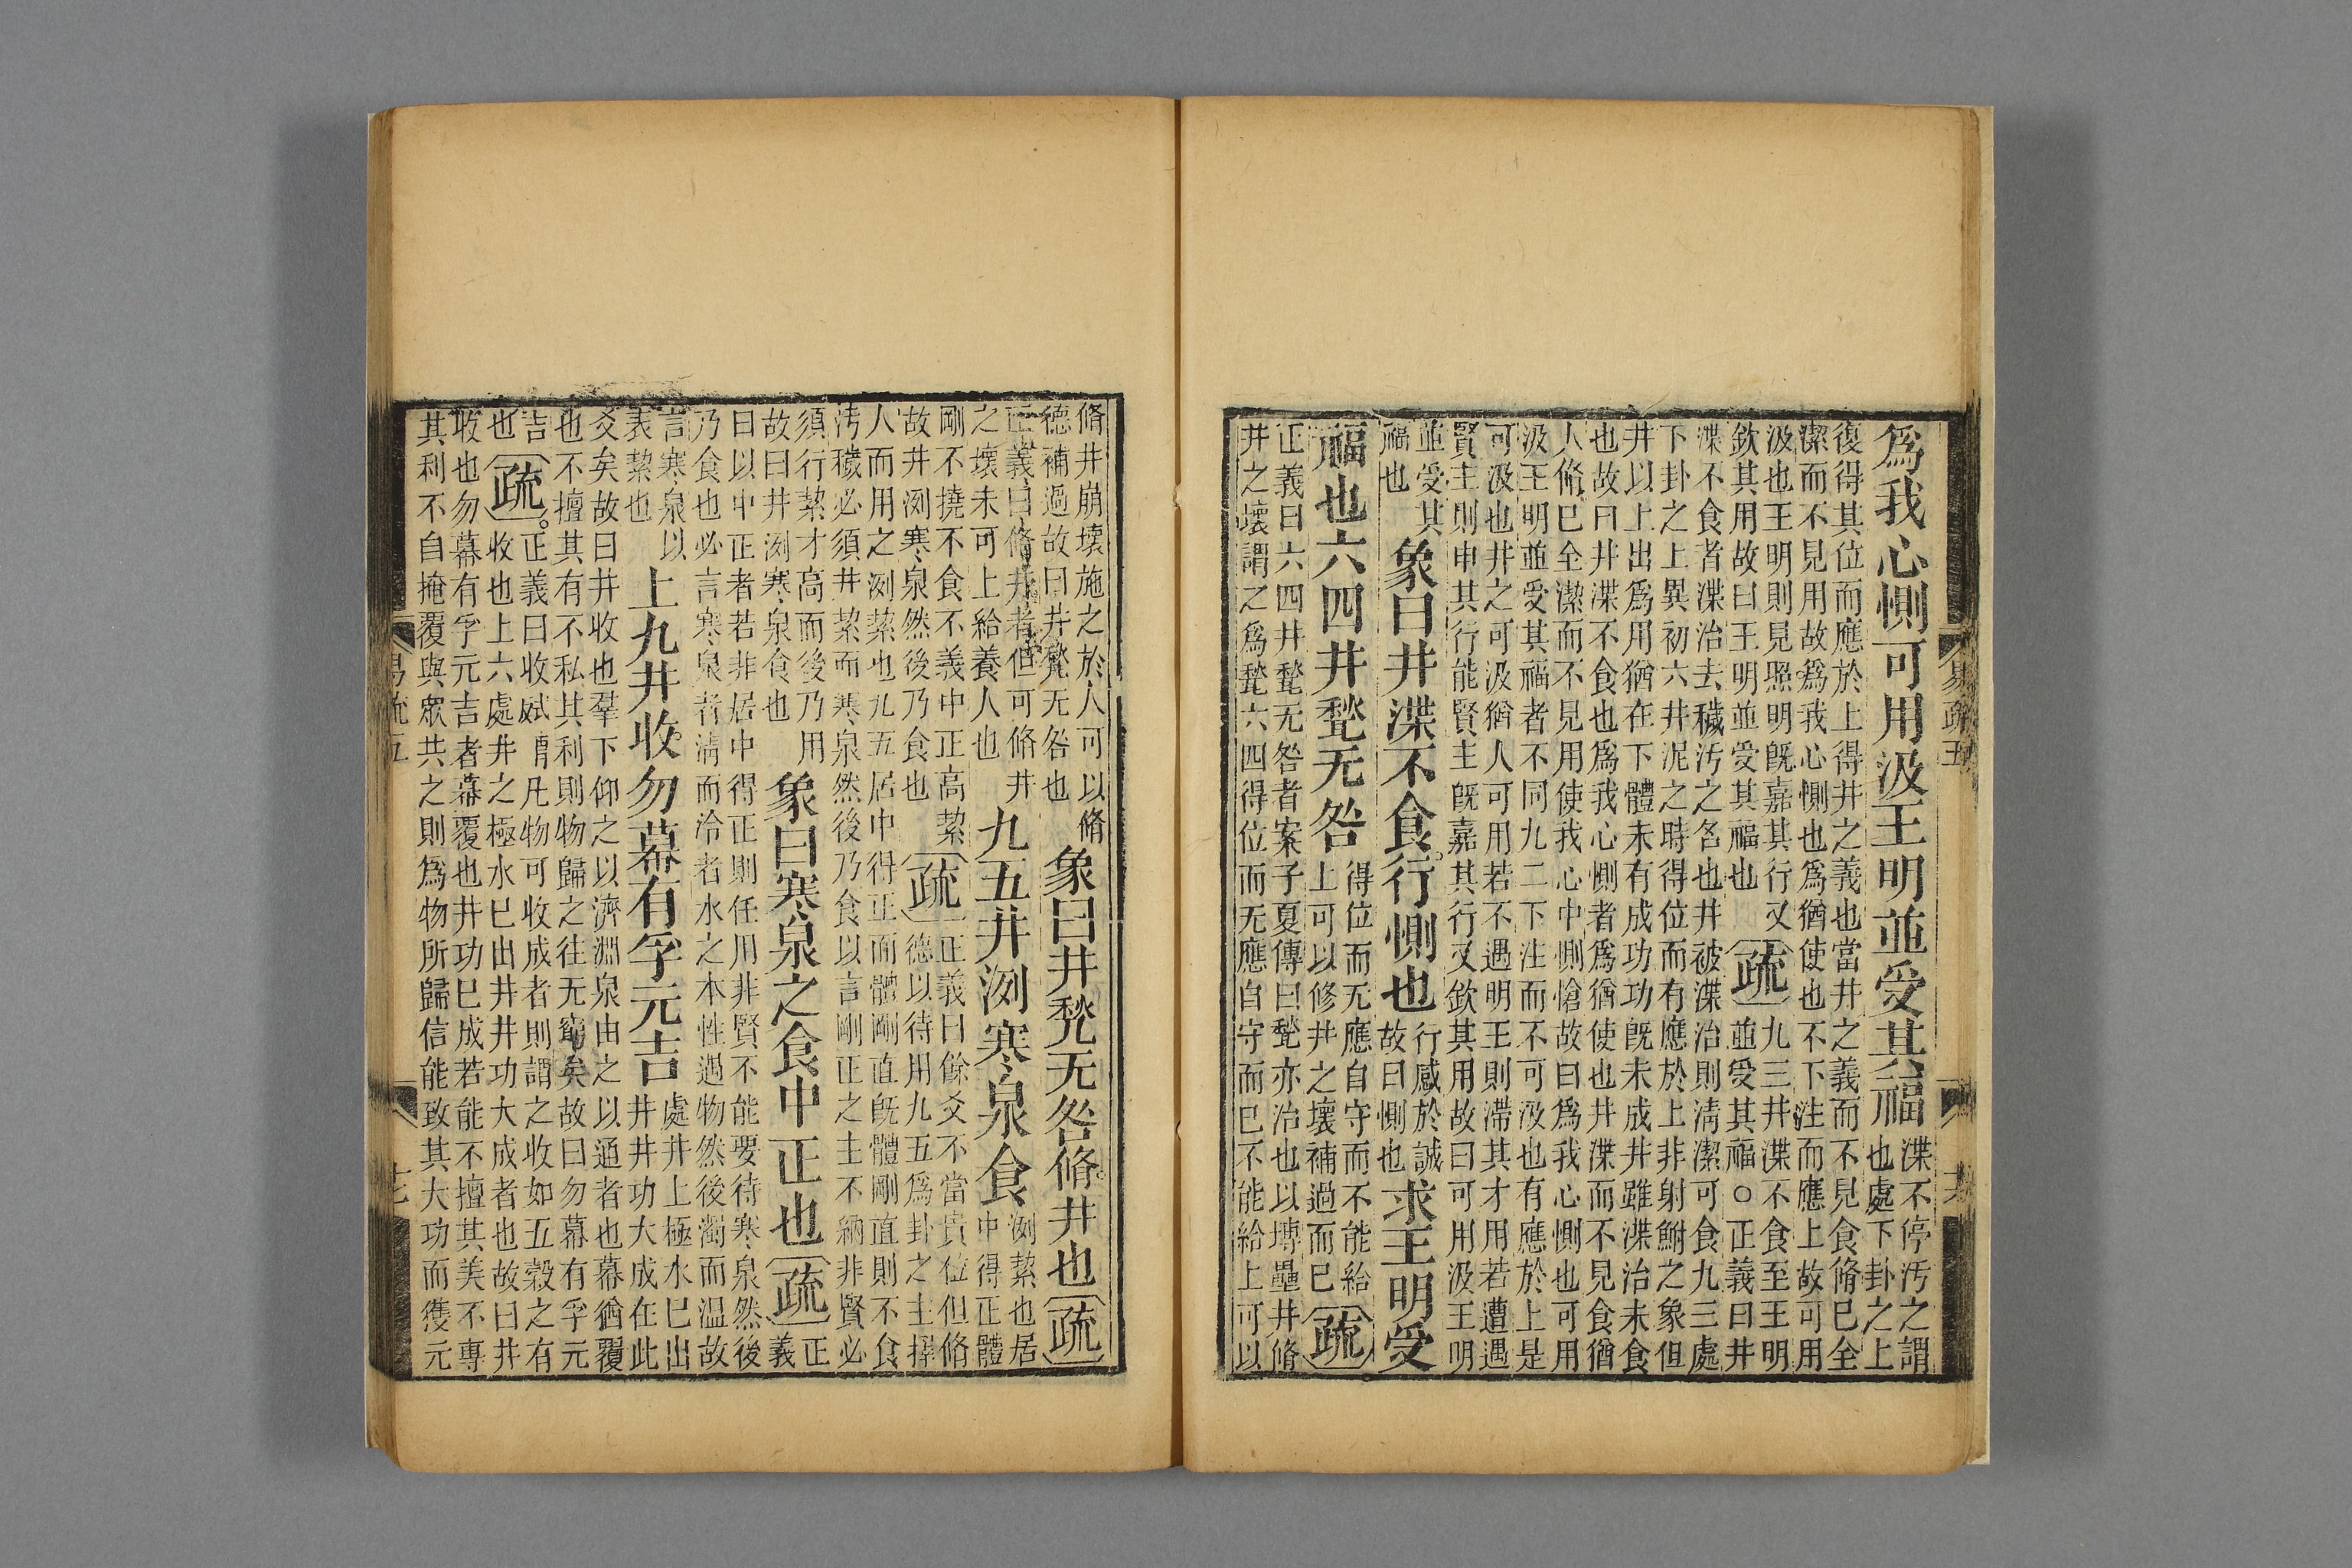 易疏五
爲我心惻可用汲王明並受其福
渫不停汚之謂
也處下卦之上
復得其位而應於上得井之義也當井之義而不見食脩已全
潔而不見用故爲我心惻也爲猶使也不下注而應上故可用
汲也王明則見照明旣嘉其行又
欽其用故曰王明並受其福也
疏
九三井渫不食至王明
並受其福○正義曰井
渫不食者渫治去穢汚之名也井被渫治則淸潔可食九三處
下卦之上異初六井泥之時得位而有應於上非射鮒之象但
井以上出爲用猶在下體未有成功功旣未成井雖渫治未食
也故曰井渫不食也爲我心惻者爲猶使也井渫而不見食猶
人脩已全潔而不見用使我心中惻愴故曰爲我心惻也可用
汲王明並受其福者不同九二下注而不可汲也有應於上是
可汲也井之可汲猶人可用若不遇明王則滯其才用若遭遇
賢主則申其行能賢主旣嘉其行又欽其用故曰可用汲王明
並受其
福也
象曰井渫不食行惻也
行感於誠
故曰惻也
求王明受
福也六四井甃无咎
得位而无應自守而不能給
上可以修井之壞補過而已
疏
正義曰六四井甃无咎者案子夏傳曰甃亦冶也以塼壘井脩
井之壞謂之爲甃六四得位而无應自守而已不能給上可以
脩井崩壞施之於人可以脩
德補過故曰井甃无咎也
象曰井甃无咎脩井也
疏
正義曰脩井者但可脩井
之壞未可上給養人也
九五井洌寒泉食
洌絜也居
中得正體
剛不撓不食不義中正高絜
故井洌寒泉然後乃食也
疏
正義曰餘爻不當貴位但脩
德以待用九五爲卦之主擇
人而用之洌絜也九五居中得正而體剛直旣體剛直則不食
汚穢必須井絜而寒泉然後乃食以言剛正之主不納非賢必
須行絜才高而後乃用
故曰井洌寒泉食也
象曰寒泉之食中正也
疏
正
義
曰以中正者若非居中得正則任用非賢不能要待寒泉然後
乃食也必言寒泉者淸而冷者水之本性遇物然後濁而温故
言寒泉以
表絜也
上九井收勿幕有孚元吉
處井上極水已出
井井功大成在此
爻矣故曰井收也羣下仰之以濟淵泉由之以通者也幕猶覆
也不擅其有不私其利則物歸之往无窮矣故曰勿幕有孚元
吉
也
疏
正義曰收賦謂凡物可收成者則謂之收如五穀之有
收也上六處井之極水已出井井功大成者也故曰井
收也勿幕有孚元吉者幕覆也井功已成若能不擅其美不專
其利不自掩覆與衆共之則爲物所歸信能致其大功而獲元
易疏五